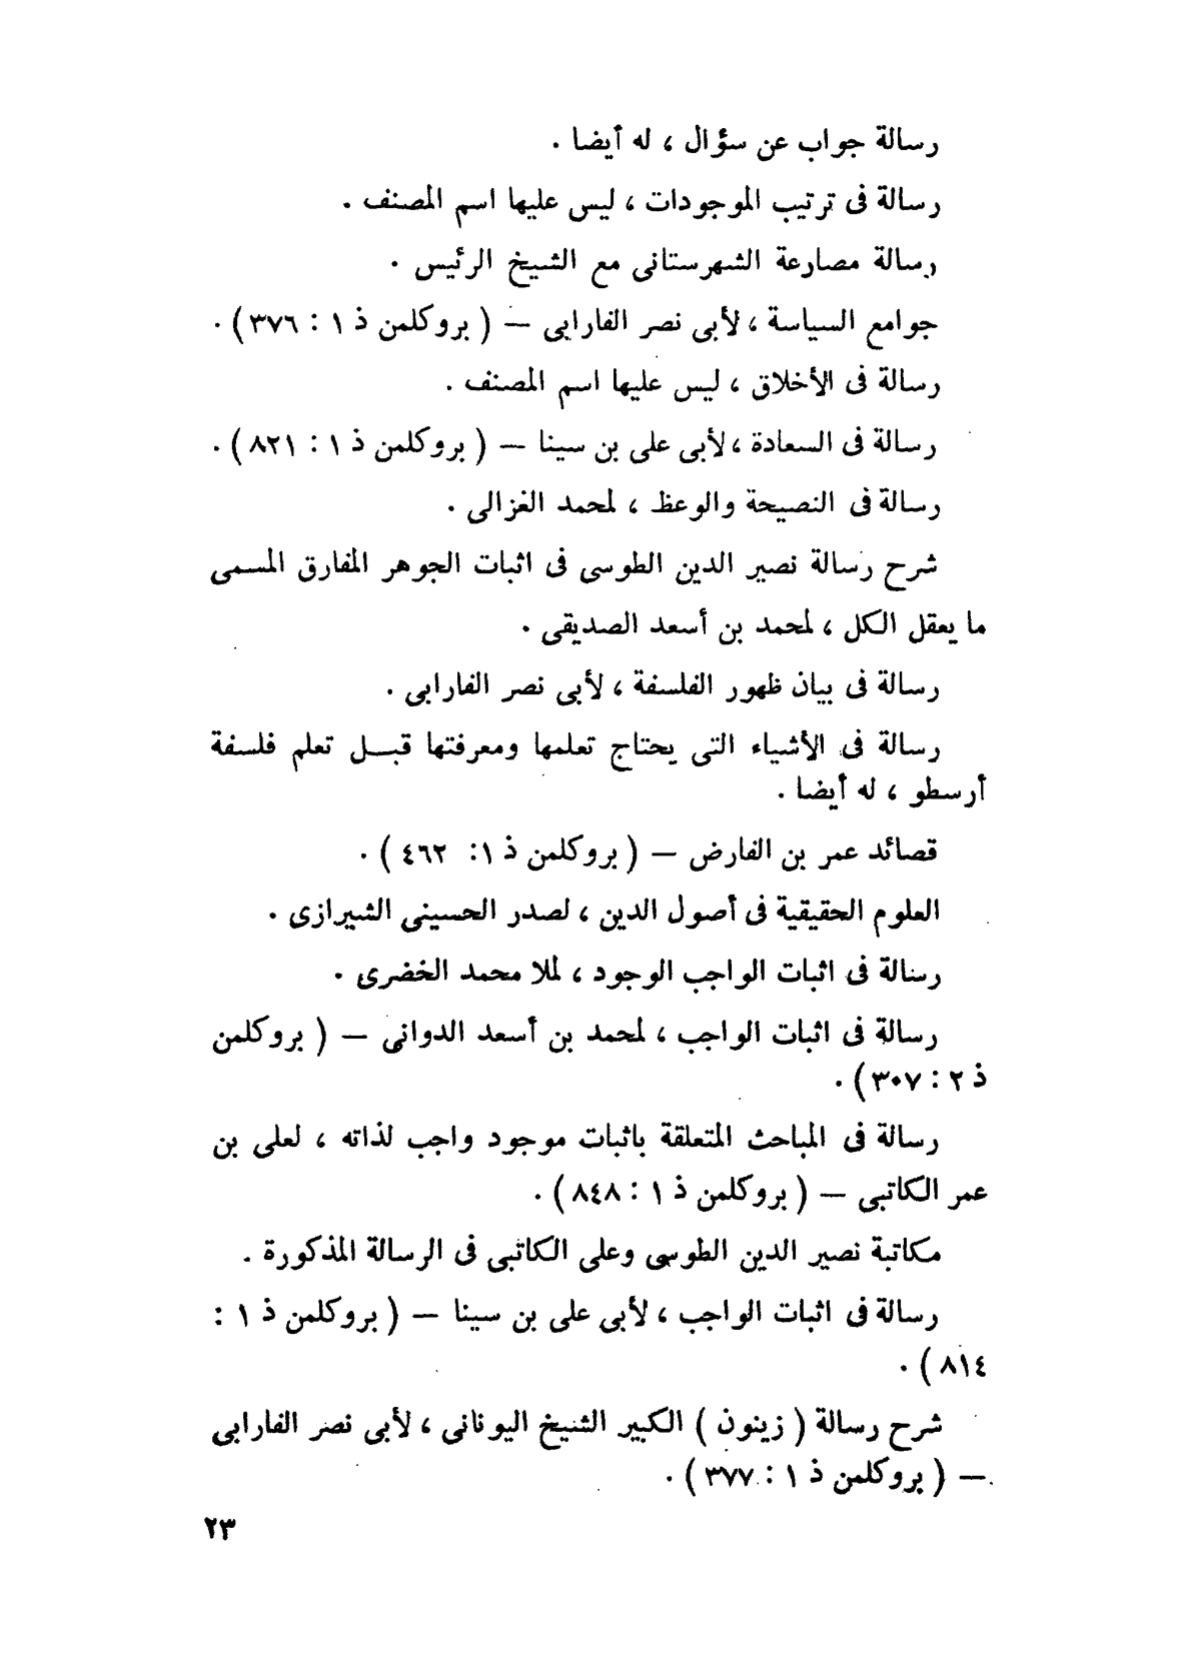 رسالة جواب عن سؤال ، له أيضا .
رسالة فى ترتيب الموجودات ، ليس عليها اسم المصنف .
رسالة مصارعة الشهرستانى مع الشيخ الرئيس .
جوامع السياسة ، لأبى نصر الفارابى — ( بروكلمن ذ ١ : ٣٧٦ ) .
رسالة فى الأخلاق ، ليس عليها اسم المصنف .
رسالة فى السعادة ، لأبى على بن سينا — ( بروكلمن ذ ١ : ٨٢١ ) .
رسالة فى النصيحة والوعظ ، لمحمد الغزالى .
شرح رسالة نصير الدين الطوسى فى اثبات الجوهر المفارق المسمى
ما يعقل الكل ، لمحمد بن أسعد الصديقى .
رسالة فى بيان ظهور الفلسفة ، لأبى نصر الفارابى .
رسالة فى الأشياء التى يحتاج تعلمها ومعرفتها قبــل تعلم فلسفة
أرسطو ، له أيضا .
قصائد عمر بن الفارض — ( بروكلمن ذ ١ : ٤٦٢ ) .
العلوم الحقيقية فى أصول الدين ، لصدر الحسينى الشيرازى .
رسالة فى اثبات الواجب الوجود ، لملا محمد الخضرى .
رسالة فى اثبات الواجب ، لمحمد بن أسعد الدوانى — ( بروكلمن
ذ ٢ : ٣٠٧ ) .
رسالة فى المباحث المتعلقة باثبات موجود واجب لذاته ، لعلى بن
عمر الكاتبى — ( بروكلمن ذ ١ : ٨٤٨ ) .
مكاتبة نصير الدين الطوسى وعلى الكاتبى فى الرسالة المذكورة .
رسالة فى اثبات الواجب ، لأبى على بن سينا — ( بروكلمن ذ ١ :
٨١٤ ) .
شرح رسالة ( زينون ) الكبير الشيخ اليونانى ، لأبى نصر الفارابى
— ( بروكلمن ذ ١ : ٣٧٧ ) .
٢٣